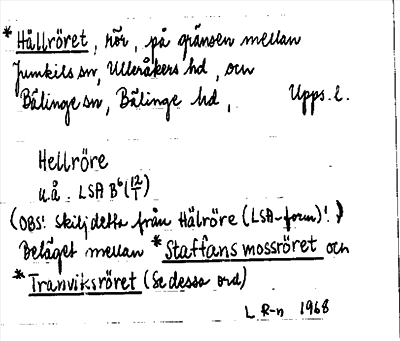 *Hällröret, rör, på gränsen mellan
Jumkils sn, Ulleråkers hd, och
Bälinge sn, Bälinge hd, Upps. l.
Hellröre
u.å. LSA B6 (12/1)
(OBS! Skilj detta från Hälröre (LSA-form)!)
Beläget mellan *Staffans mossröret och
*Tranviksröret (Se dessa ord)
L R-n 1968